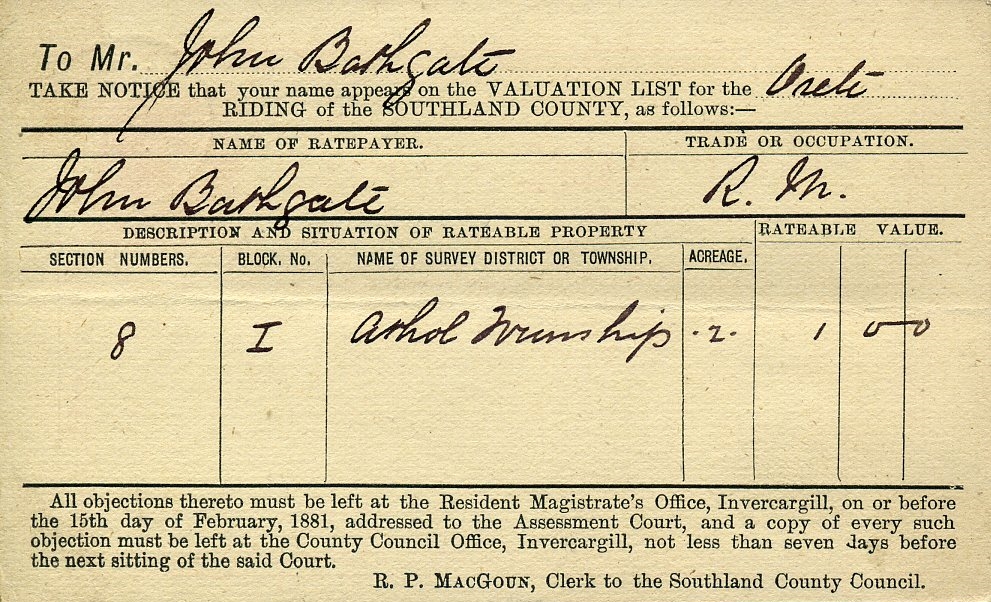 To Mr. John Bathgate
TAKE NOTICE that your name appears on the VALUATION LIST for the Oreti
RIDING of the SOUTHLAND COUNTY, as follows:—
NAME OF RATEPAYER. TRADE OR OCCUPATION.
John Bathgate R. M.
DESCRIPTION AND SITUATION OF RATEABLE PROPERTY RATEABLE VALUE.
SECTION NUMBERS. BLOCK, No. NAME OF SURVEY DISTRICT OR TOWNSHIP. ACREAGE.
8 I Athol Township .2. 1 0 0
All objections thereto must be left at the Resident Magistrate's Office, Invercargill, on or before
the 15th day of February, 1881, addressed to the Assessment Court, and a copy of every such
objection must be left at the County Council Office, Invercargill, not less than seven days before
the next sitting of the said Court.
R. P. MACGOUN, Clerk to the Southland County Council.